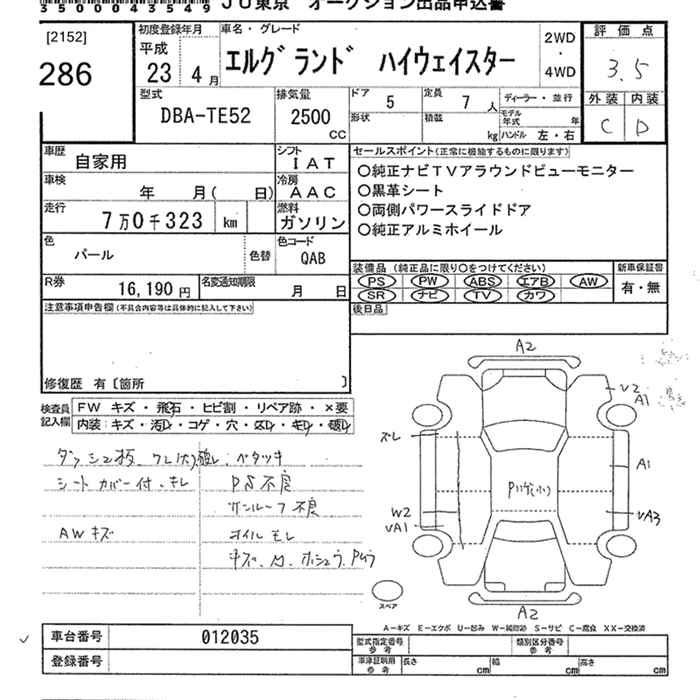 35000043549 JU東京 オークション出品申込書
[2152]
286
初度登録年月
平成
23 4月
車名・グレード
エルグランド ハイウェイスター
2WD
・
4WD
評価点
3.5
外装 内装
C D
型式
DBA-TE52
排気量
2500
CC
ドア 5
定員 7人
形状
積載 kg
ディーラー・並行
モデル年式 年
ハンドル 左・右
車歴 自家用
シフト IAT
車検 年 月( 日)
冷房 AAC
走行 7万0千323 km
燃料 ガソリン
色 パール
色替
色コード QAB
R券 16,190円
名変通知期限 月 日
セールスポイント(正常に機能するものに限ります)
○純正ナビTVアラウンドビューモニター
○黒革シート
○両側パワースライドドア
○純正アルミホイール
装備品 (純正品に限り○をつけてください)
PS PW ABS エアB AW
SR ナビ TV カワ
新車保証書
有・無
後日品
注意事項申告欄(不具合内容等は具体的に記入して下さい)
修復歴 有〔箇所 〕
検査員記入欄
FW キズ・飛石・ヒビ割・リペア跡・×要
内装:キズ・汚レ・コゲ・穴・スレ・キレ・破レ
ダッシュ板、ワレ(大)補レ、ベタツキ
シートカバー付・キレ PS不良
サンルーフ不良
AWキズ オイルモレ
A2
V2
A1
ズレ
A1
W2
VA1
VA3
A2
スペア
A-キズ E-エクボ U-凹み W-補修跡 S-サビ C-腐食 XX-交換済
車台番号 012035
登録番号
型式指定番号 参考
類別区分番号 参考
車庫証明用 参考
長さ cm
幅 cm
高さ cm